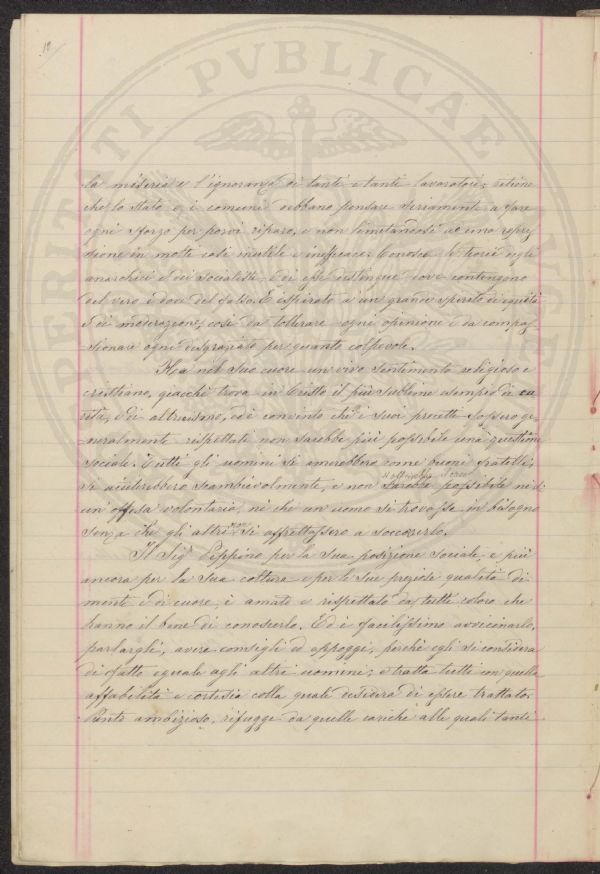 12/
PERITATI PVBLICAE
la miseria e l'ignoranza di tanti e tanti lavoratori; ritiene
che lo Stato e i comuni debbano pensare seriamente a fare
ogni sforzo per porvi riparo, e non limitandosi ad una repres-
sione in molti casi inutile e inefficace. Conosce le teorie degli
anarchici e dei socialisti e di esse distingue dove contengono
del vero e dove del falso. È ispirato a un grande spirito di equità
e di moderazione, così da tollerare ogni opinione e da compas-
sionare ogni disgraziato per quanto colpevole.
Ha nel suo cuore un vivo sentimento religioso e
cristiano, giacchè trova in Cristo il più sublime esempio di ca
rità, e di altruismo, ed è convinto che i suoi precetti fossero ge-
neralmente rispettati non sarebbe più possibile una questione
sociale. Tutti gli uomini si amerebbero come buoni fratelli,
si aiuterebbero scambievolmente, e non sarebbe possibile nè
un'offesa volontaria, nè che un uomo si trovasse in bisogno
senza che gli altri non si affrettassero a soccorrerlo.
Il Sig. Peppino per la sua posizione sociale e più
ancora per la sua coltura e per le sue preziose qualità di
mente e di cuore, è amato e rispettato da tutti coloro che
hanno il bene di conoscerlo. Ed è facilissimo avvicinarlo,
parlargli, avere consigli ed appoggi, perchè egli si considera
di fatto eguale agli altri uomini; e tratta tutti con quella
affabilità e cortesia colla quale desidera di essere trattato.
Punto ambizioso, rifugge da quelle cariche alle quali tanti